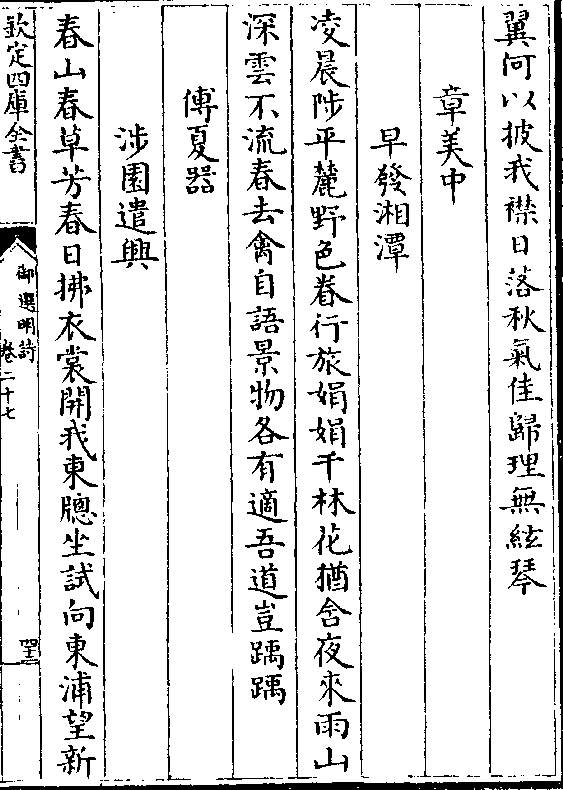 翼何以披我襟日落秋氣佳歸理無絃琴
章美中
早發湘潭
凌晨陟平麓野色眷行旅娟娟千林花猶含夜來雨山
深雲不流春去禽自語景物各有適吾道豈踽踽
傅夏器
涉園遣興
春山春草芳春日拂衣裳開我東牕坐試向東浦望新
欽定四庫全書
御選明詩
卷二十七